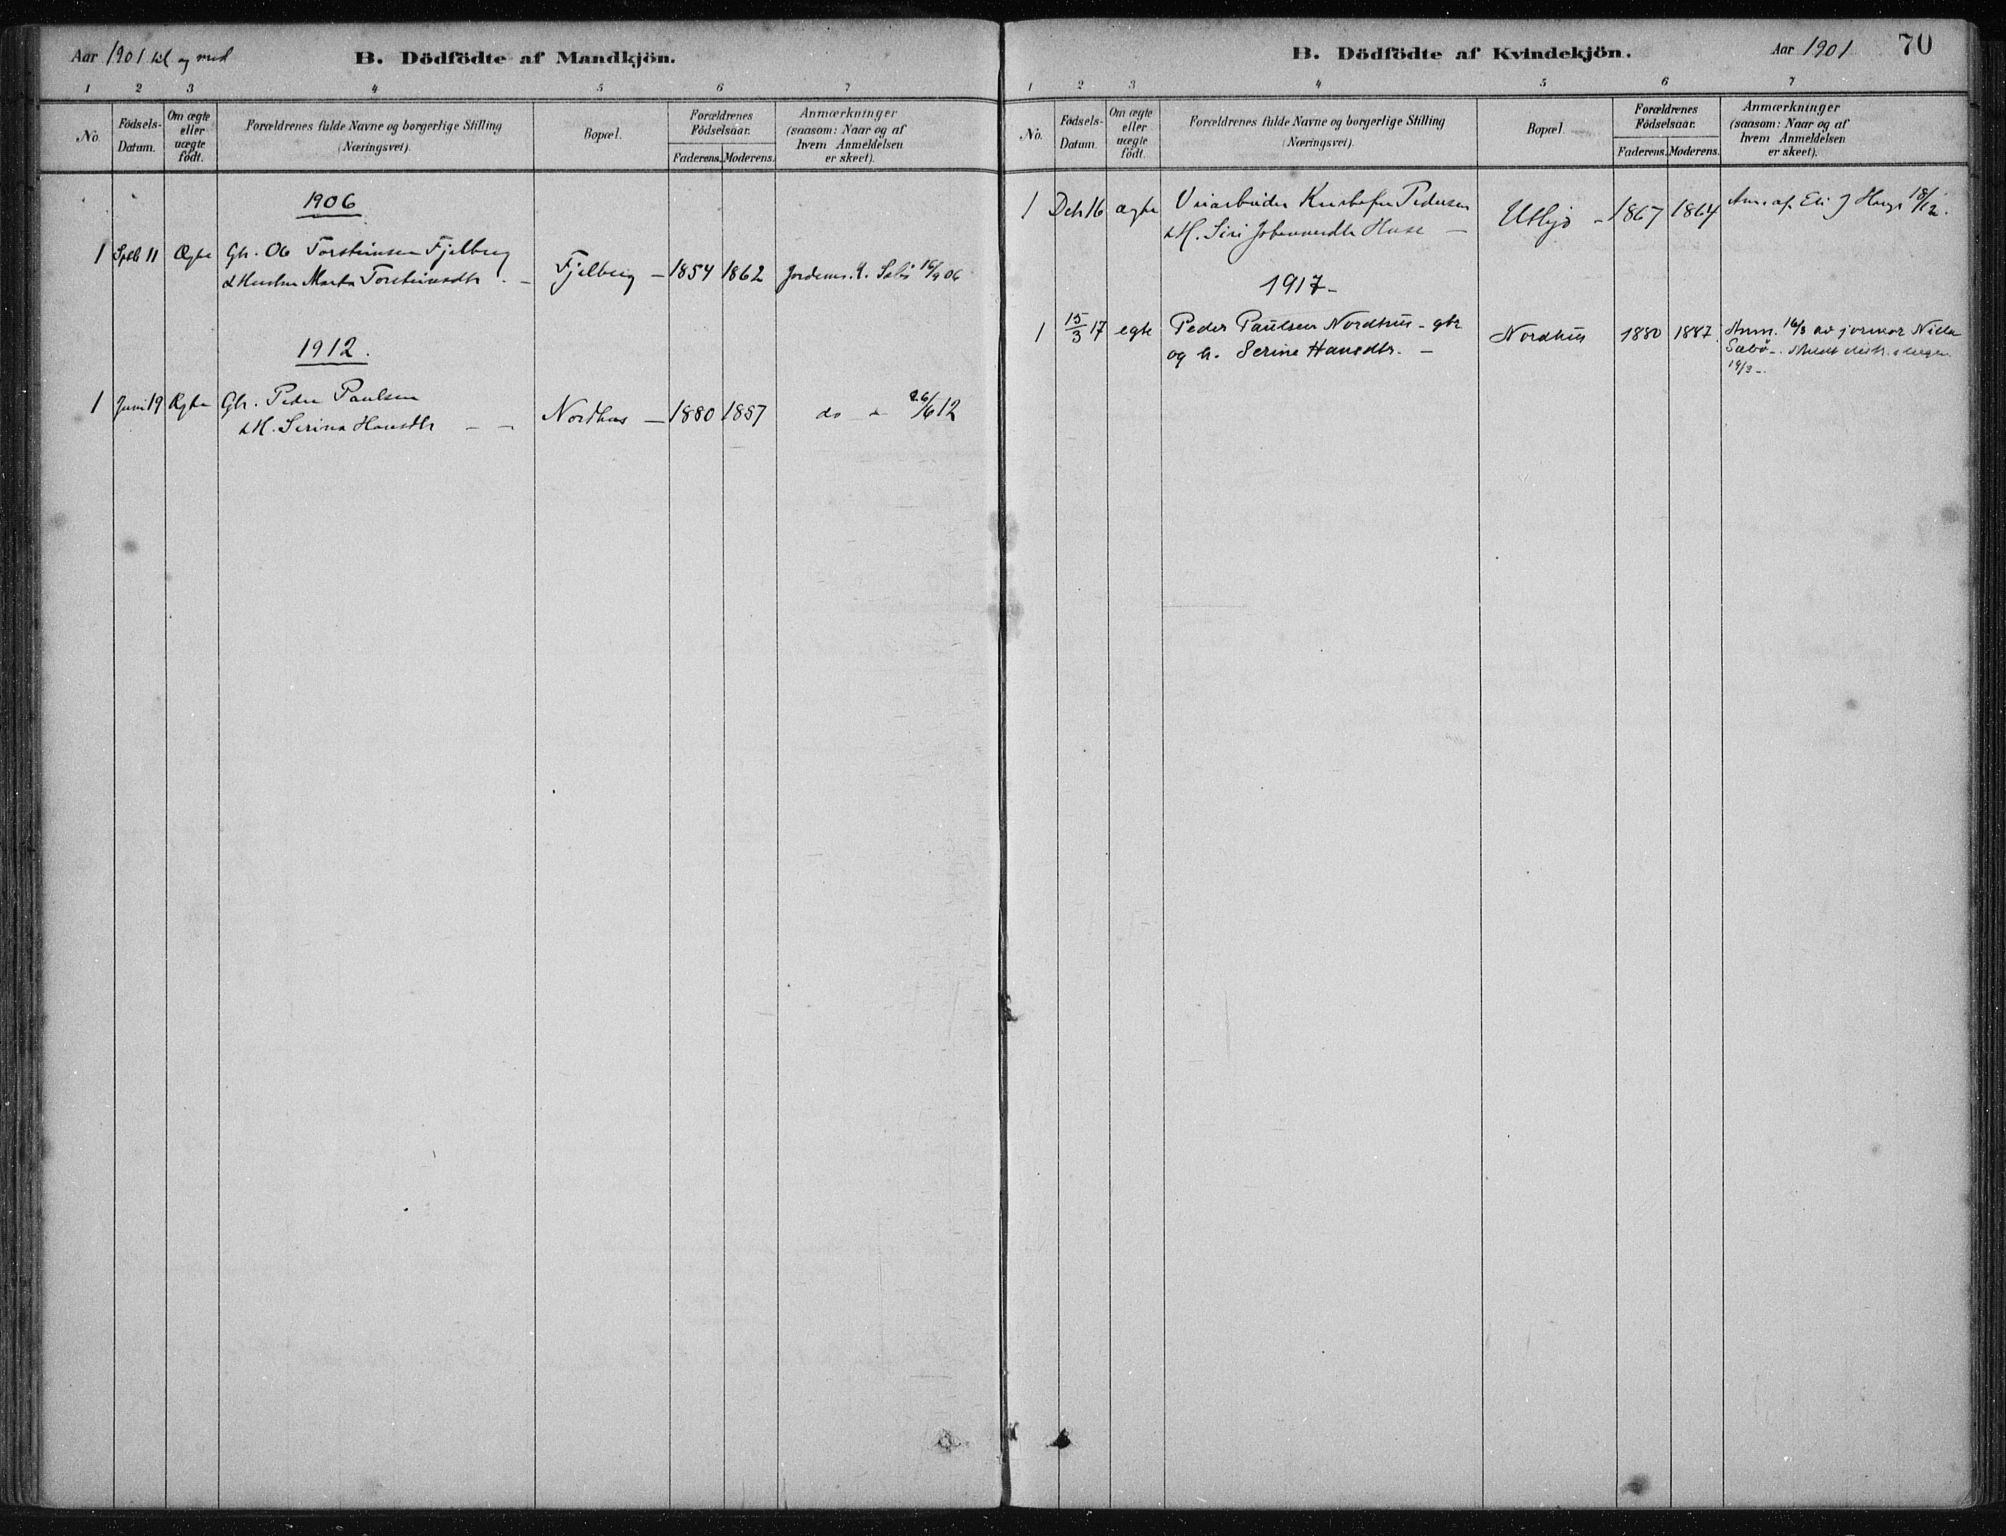 Aar 1901 til og med
B. Dödfödte af Mandkjön.
1 2 3 4 5 6 7
No.
Födsels-
Datum.
Om ægte
eller
uægte
födt.
Forældrenes fulde Navne og borgerlige Stilling
(Næringsvei).
Bopæl.
Forældrenes
Födselsaar.
Faderens. Moderens.
Anmærkninger
(saasom: Naar og af
hvem Anmeldelsen
er skeet).
1906
1 Septb 11 Ægte Gbr. Ole Torsteinsen Fjelberg
& Hustru Marta Torsteinsdtr. - Fjelberg - 1854 1862 Jordem. 06
1912.
1 Juni 19 Ægte Gbr. Peder Paulsen
& H. Serina Hansdtr - - Nordhus - 1880 1887 do 26/6 12
B. Dödfödte af Kvindekjön.
Aar 1901 70
1 2 3 4 5 6 7
No.
Födsels-
Datum.
Om ægte
eller
uægte
födt.
Forældrenes fulde Navne og borgerlige Stilling
(Næringsvei).
Bopæl.
Forældrenes
Födselsaar.
Faderens. Moderens.
Anmærkninger
(saasom: Naar og af
hvem Anmeldelsen
er skeet).
1 Dcb 16 ægte Veiarbeider Kristofer Pedersen
& H. Siri Johannesdtr - Utbjo - 1867 1864 Anm. af 18/12.
1917-
1 15/3 17 egte Peder Paulsen Nordhus - gbr
og h. Serine Hansdtr. - Nordhus 1880 1887. Anm. 16/3 av jormor
Sæbö -
19/3 -